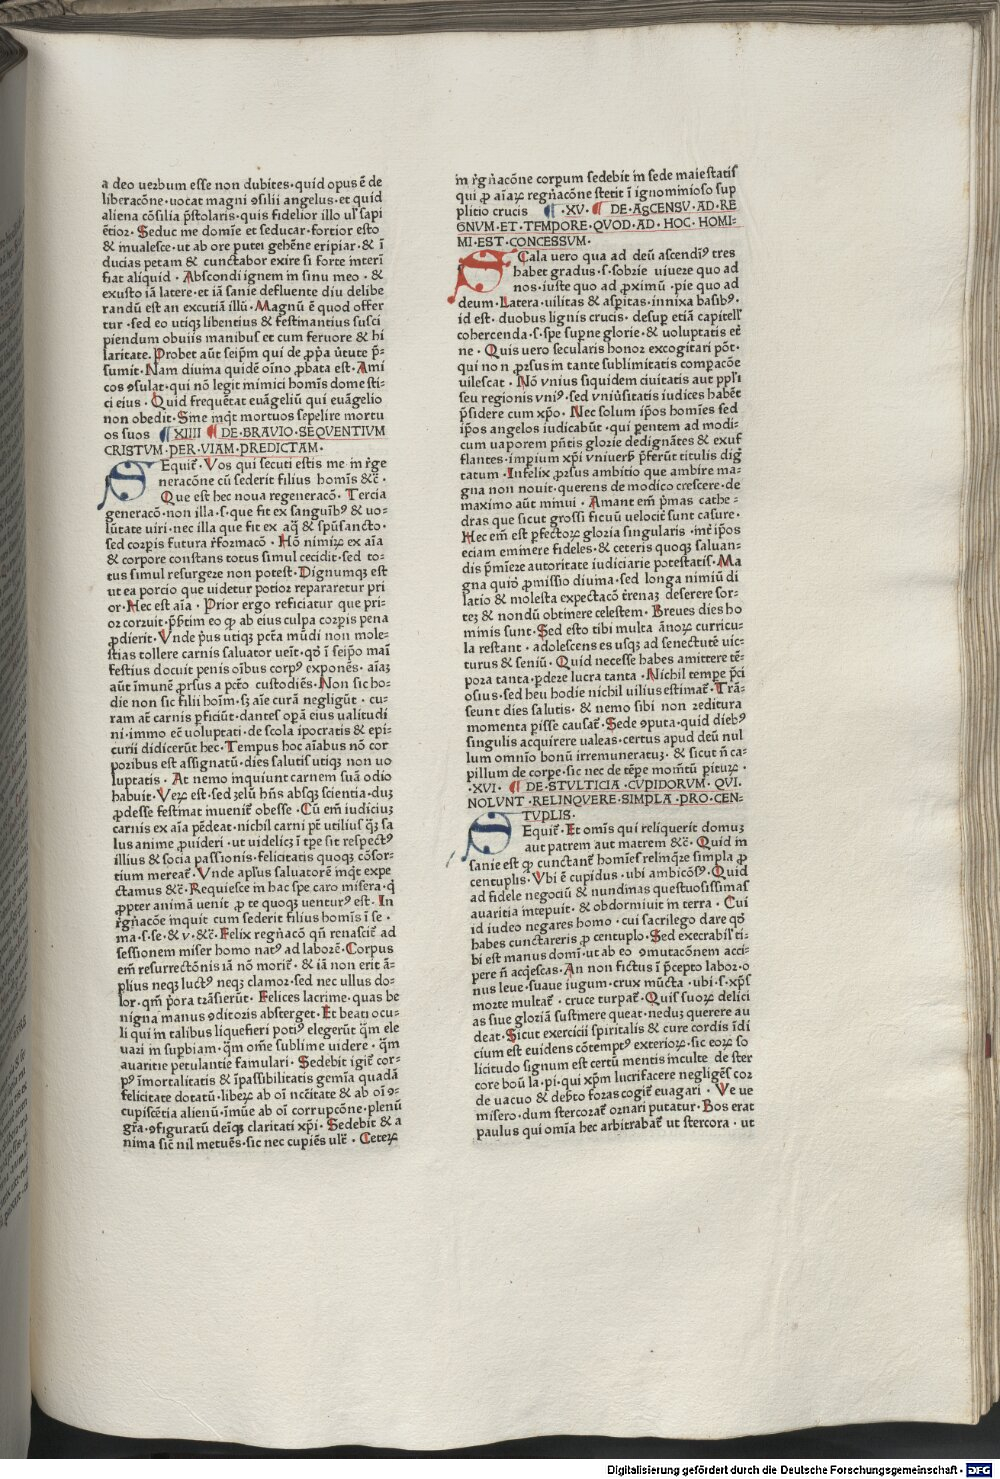 a deo uerbum esse non dubites·quid opus ē de
liberacōne·uocat magni ꝯsilii angelus·et quid
aliena cōsilia p̄stolaris·quis fidelior illo ul̄ sapi
ētior·Seduc me domīe et seducar·fortior esto
& inualesce·ut ab ore putei gehēne eripiar·& ī
ducias petam & cunctabor exire si forte interī
fiat aliquid·Abscondi ignem in sinu meo·&
exusto iā latere·et iā sanie defluente diu delibe
randū est an excutiā illū·Magnū ē quod offer
tur·sed eo utiqꝫ libentius & festinantius susci
piendum obuiis manibus et cum feruore & hi
laritate.Probet aūt seip̄m qui de ꝓp̄a ūtute p̄-
sumit·Nam diuina quidē oīno ꝓbata est·Ami
cos ꝯsulat·qui nō legit inimici homīs dome sti-
ci eius·Quid frequētat euāgeliū qui euāgelio
non obedit·Sine inq̄t mortuos sepelire mortu
os suos XIIII DE·BRAVIO·SEQVENTIVM
CRISTVM·PER·VIAM·PREDICTAM·
SEquit̄·Vos qui secuti estis me in r̄ge
neracōne cū sederit filius homīs &c̄·
Que est hec noua regeneracō·Tercia
generacō·non illa·s·que fit ex sanguībꝰ & uo-
lūtate uiri·nec illa que fit ex aq̄ & sp̄usancto·
sed corpīs futura r̄formacō·Hō nimiꝝ ex aīa
& corpore constans totus simul cecidit·sed to-
tus simul resurgere non potest·Dignumqꝫ est
ut ea porcio que uidetur potior repararetur pri
or·Hec est aīa·Prior ergo reficiatur que pri-
or corruit·p̄sertim eo ꝙ ab eius culpa corpīs pena
ꝓdierit·Vnde p̄us utiqꝫ pctā mūdi non mole-
stias tollere carnis saluator ueīt·qd̄ ī seip̄o maī
festius docuit penis oībus corpꝰ exponēs·aīaꝫ
aūt īmunē ꝓrsus a pctō custodiēs·Non sic ho-
die non sic filii hoīm·sꝫ aīe curā negligūt·cu-
ram at̄ carnis pficiūt·dantes opā eius ualitudi
ni·immo ec̄ uoluptati·de scola ipocratis & epi-
curii didicerūt hec·Tempus hoc aīabus nō cor
poribus est assignatū·dies salutis utiqꝫ non uo
luptatis·At nemo inquiunt carnem suā odio
habuit·Veꝝ est·sed ꝫelū hn̄s absqꝫ scientia·duꝫ
ꝓdesse festinat inuenit̄ obesse·Cū em̄ iudiciuꝫ
carnis ex aīa pēdeat·nichil carni pc̄ utilius q̄ꝫ sa
lus anime ꝓuideri·ut uidelicꝫ ī tp̄e sit respectꝰ
illius & socia passionis·felicitatis quoqꝫ cōsor-
tium mereat̄·Vnde ap̄lus saluatorē inq̄t expe
ctamus &c̄·Requiesce in hac spe caro misera·q̄
ꝓpter animā uenit ꝓ te quoqꝫ uenturꝰ est·In
r̄gn̄acōe inquit cum sederit filius homīs ī se·
ma·s·se·& v·&c̄·Felix regn̄acō qn̄ renascit̄ ad
sessionem miser homo natꝰ ad laborē·Corpus
em̄ resurrectōnis iā nō morit̄·& iā non erit ā-
plius neqꝫ luctꝰ neqꝫ clamor·sed nec ullus do-
lor·qm̄ p̄ora trāsierūt·Felices lacrime·quas be
nigna manus ꝯditoris absterget·Et beati ocu-
li qui in talibus liquefieri potiꝰ elegerūt q̄m ele
uari in supbiam·q̄m om̄e sublime uidere·q̄m
auaritie petulantie famulari·Sedebit igit̄ cor-
pꝰ īmortalitatis & īpassibilitatis gemīa quadā
felicitate dotatū·libeꝝ ab oī nc̄citate & ab oī ꝯ-
cupiscētia alienū·īmūe ab oī corrupcōne·plenū
gr̄a·ꝯfiguratū deīqꝫ claritati xp̄i·Sedebit & a
nima sic̄ nil metuēs·sic nec cupiēs ulr̄·Ceteꝝ
in r̄gn̄acōne corꝑum sedebit in sede maiestatis
qui ꝓ aīaꝝ regn̄acōne stetit ī ignominioso sup
plitio crucis ·XV· DE·ASCENSV·AD·RE
GNVM·ET·TEMPORE·QVOD·AD·HOC·HOMI-
MI·EST·CONCESSVM·
SCala uero qua ad deū ascendiꝰ tres
habet gradus·s·sobrie uiuere quo ad
nos·iuste quo ad ꝓximū·pie quo ad
deum·Latera·uilitas & aspitas·innixa basibꝰ·
id est·duobus lignis crucis·desuꝑ etiā capitell̄
cohercenda·s·spe supne glorie·& uoluptatis et̄
ne·Quis uero secularis honor excogitari pōt·
qui non ꝓrsus in tante sublimitatis compacōe
uilescat·Nō vnius siquidem ciuitatis aut pp̄li
seu regionis vniꝰ·sed vniūsitatis iudices habēt
p̄sidere cum xp̄o·Nec solum ip̄os homīes sed
ip̄os angelos iudicabūt·qui pentem ad modi-
cum uaporem pn̄tis glorie dedignātes & exuf
flantes·impium xp̄i vniuersꝭ p̄ferūt titulis dig̅
tatum·Infelix ꝓrsus ambitio que ambire ma-
gna non nouit·querens de modico crescere·de
maximo aūt minui·Amant em̄ p̄mas cathe-
dras que sicut grossi ficuū uelocit̄ sunt casure·
Hec em̄ est pfectoꝝ gloria singularis·int̄ ip̄os
eciam eminere fideles·& ceteris quoqꝫ saluan-
dis p̄mīeze autoritate iudiciarie potestatis·Ma
gna quiꝺ ꝓmissio diuina·sed longa nimiū di
latio & molesta expectacō t̄renaꝫ deserere sor-
teꝫ & nondū obtinere celestem·Breues dies ho
minis sunt·Sed esto tibi multa ānoꝝ curricu-
la restant·adolescens es usqꝫ ad senectutē uic-
turus & seniū·Quid necesse habes amittere tē-
pora tanta·pdere lucra tanta·Nichil tempe p̄ci
osius·sed heu hodie nichil uilius estimat̄·Trā-
seunt dies salutis·& nemo sibi non reditura
momenta pisse causat̄·Sede ꝯputa·quid diebꝰ
singulis acquirere ualeas·certus apud deū nul
lum omnīo bonū irremuneratuꝫ·& sicut n̄ ca-
pillum de corpe·sic nec de tēpe momētū pituꝝ·
·XVI· DE·STVLTICIA·CVPIDORVM·QVI·
NOLVNT·RELINQVERE·SIMPLA·PRO·CEN-
TVPLIS·
SEquit̄·Et omīs qui reliquerit domuꝫ
aut patrem aut matrem &c̄·Quid in
sanie est ꝙ cunctant̄ homīes relinq̄re simpla ꝓ
centuplis·Vbi ē cupidus·ubi ambicōsꝰ·Quid
ad fidele negociū & nundinas questuosissimas
auaritia intepuit·& obdormiuit in terra·Cui
id iudeo negares homo·cui sacrilego dare qd̄
habes cunctareris ꝓ centuplo·Sed execrabil̄ ti-
bi est manus domī·ut ab eo ꝯmutacōnem acci-
pere n̄ acq̄escas·An non fictus ī p̄cepto labor·o
nus leue·suaue iugum·crux mūcta·ubi·s·xp̄s
morte multat̄·cruce turpat̄·Quis suoꝝ delici
as siue gloriā sustinere queat·neduꝫ querere au
deat·Sicut exercicii spiritalis & cure cordis īdi
cium est euidens cōtemptꝰ exterioꝝ·sic eoꝝ so
licitudo signum est certū mentis inculte de ster
core boū la·pi·qui xp̄m lucrifacere negligēs cor
de uacuo & debto foras cogit̄ euagari·Ve ue
misero·dum stercorat̄ ornari putatur·Bos erat
paulus qui omīa hec arbitrabat̄ ut stercora·ut
Digitalisierung gefördert durch die Deutsche Forschungsgemeinschaft · DFG